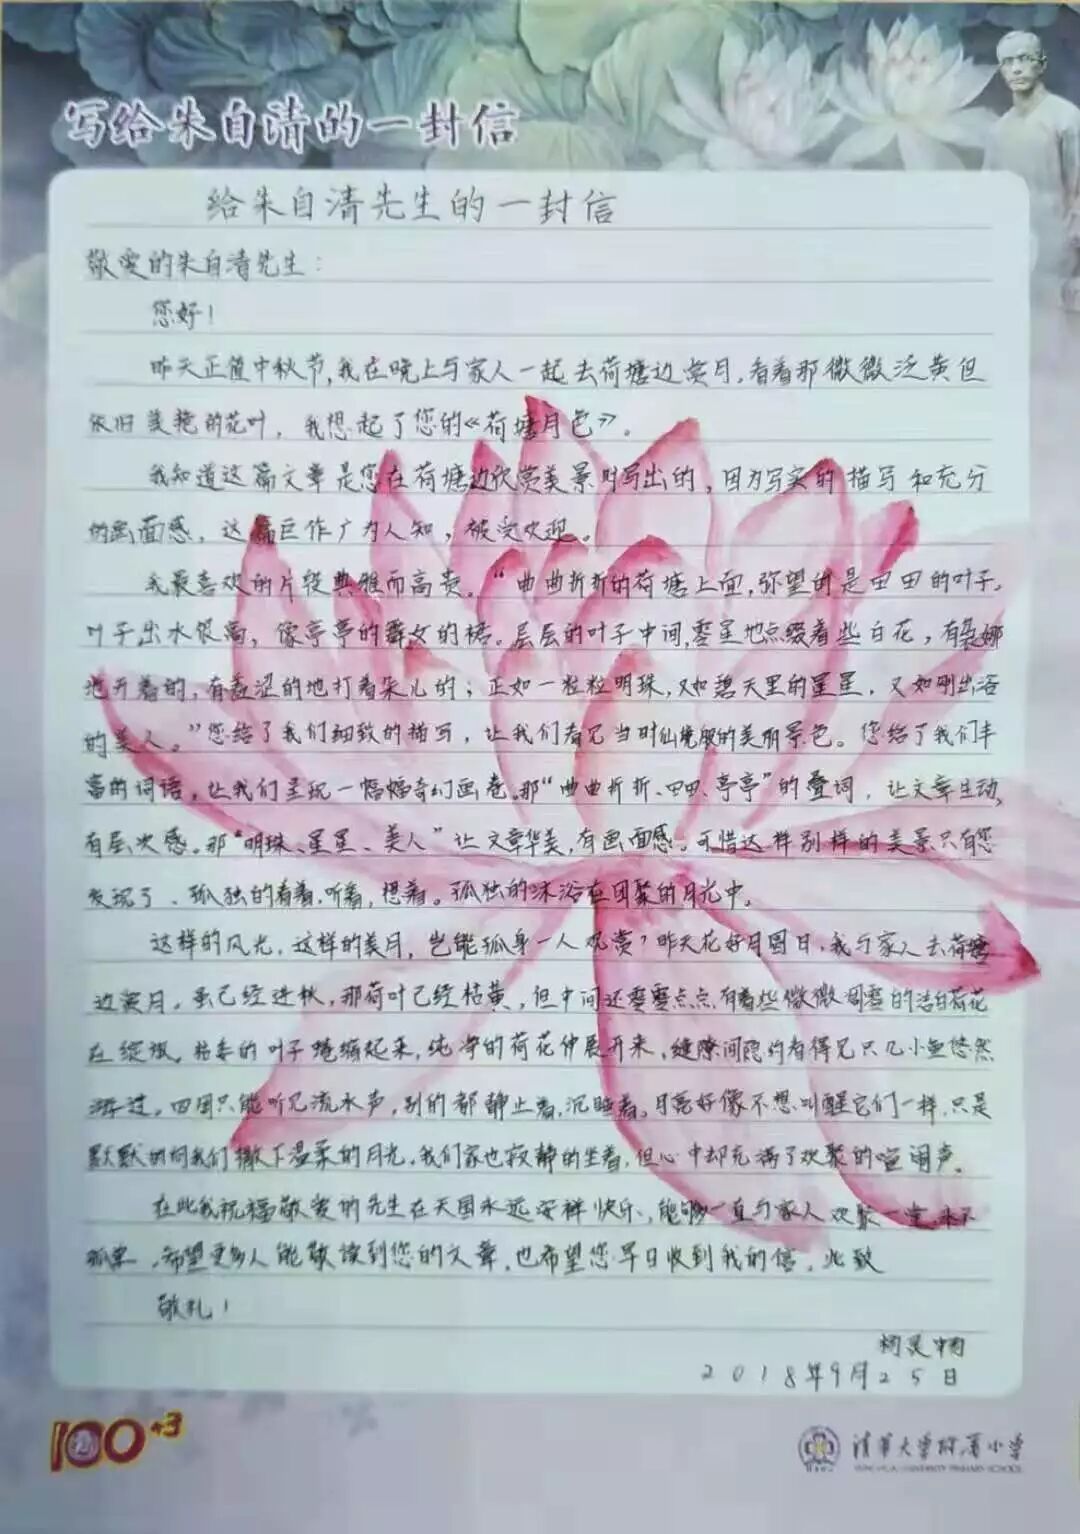 写给朱自清的一封信
给朱自清先生的一封信
敬爱的朱自清先生：
您好！
昨天正值中秋节，我在晚上与家人一起去荷塘边赏月，看着那微微泛黄但
依旧美艳的花叶，我想起了您的《荷塘月色》。
我知道这篇文章是您在荷塘边欣赏美景时写出的，因为写实的描写和充分
的画面感，这篇巨作广为人知，被受欢迎。
我最喜欢的片段典雅而高贵。“曲曲折折的荷塘上面，弥望的是田田的叶子。
叶子出水很高，像亭亭的舞女的裙。层层的叶子中间，零星地点缀着些白花，有袅娜
地开着的，有羞涩的地打着朵儿的；正如一粒粒明珠，又如碧天里的星星，又如刚出浴
的美人。”您给了我们细致的描写，让我们看见当时仙境般的美丽景色。您给了我们丰
富的词语，让我们呈现一幅幅奇幻画卷。那“曲曲折折、田田、亭亭”的叠词，让文章生动，
有层次感。那“明珠、星星、美人”让文章华美，有画面感。可惜这样别样的美景只有您
发现了、孤独的看着，听着，想着。孤独的沐浴在团聚的月光中。
这样的风光，这样的美月，岂能孤身一人观赏？昨天花好月圆日，我与家人去荷塘
边赏月。虽已经进秋，那荷叶已经枯黄，但中间还零零点点有着些微微凋零的洁白荷花
在绽放。枯萎的叶子蜷缩起来，纯净的荷花伸展开来，缝隙间隐约看得见只几小鱼悠然
游过，四周只能听见流水声，别的都静止着，沉睡着。月亮好像不想叫醒它们一样，只是
默默的向我们撒下温柔的月光，我们家也寂静的坐着，但心中却充满了欢聚的喧闹声。
在此我祝福敬爱的先生在天国永远安祥快乐，能够一直与家人欢聚一堂，永不
孤单。希望更多人能敬读到您的文章，也希望您早日收到我的信。此致
敬礼！
2018年9月25日
100+3
清华大学附属小学
TSINGHUA UNIVERSITY PRIMARY SCHOOL